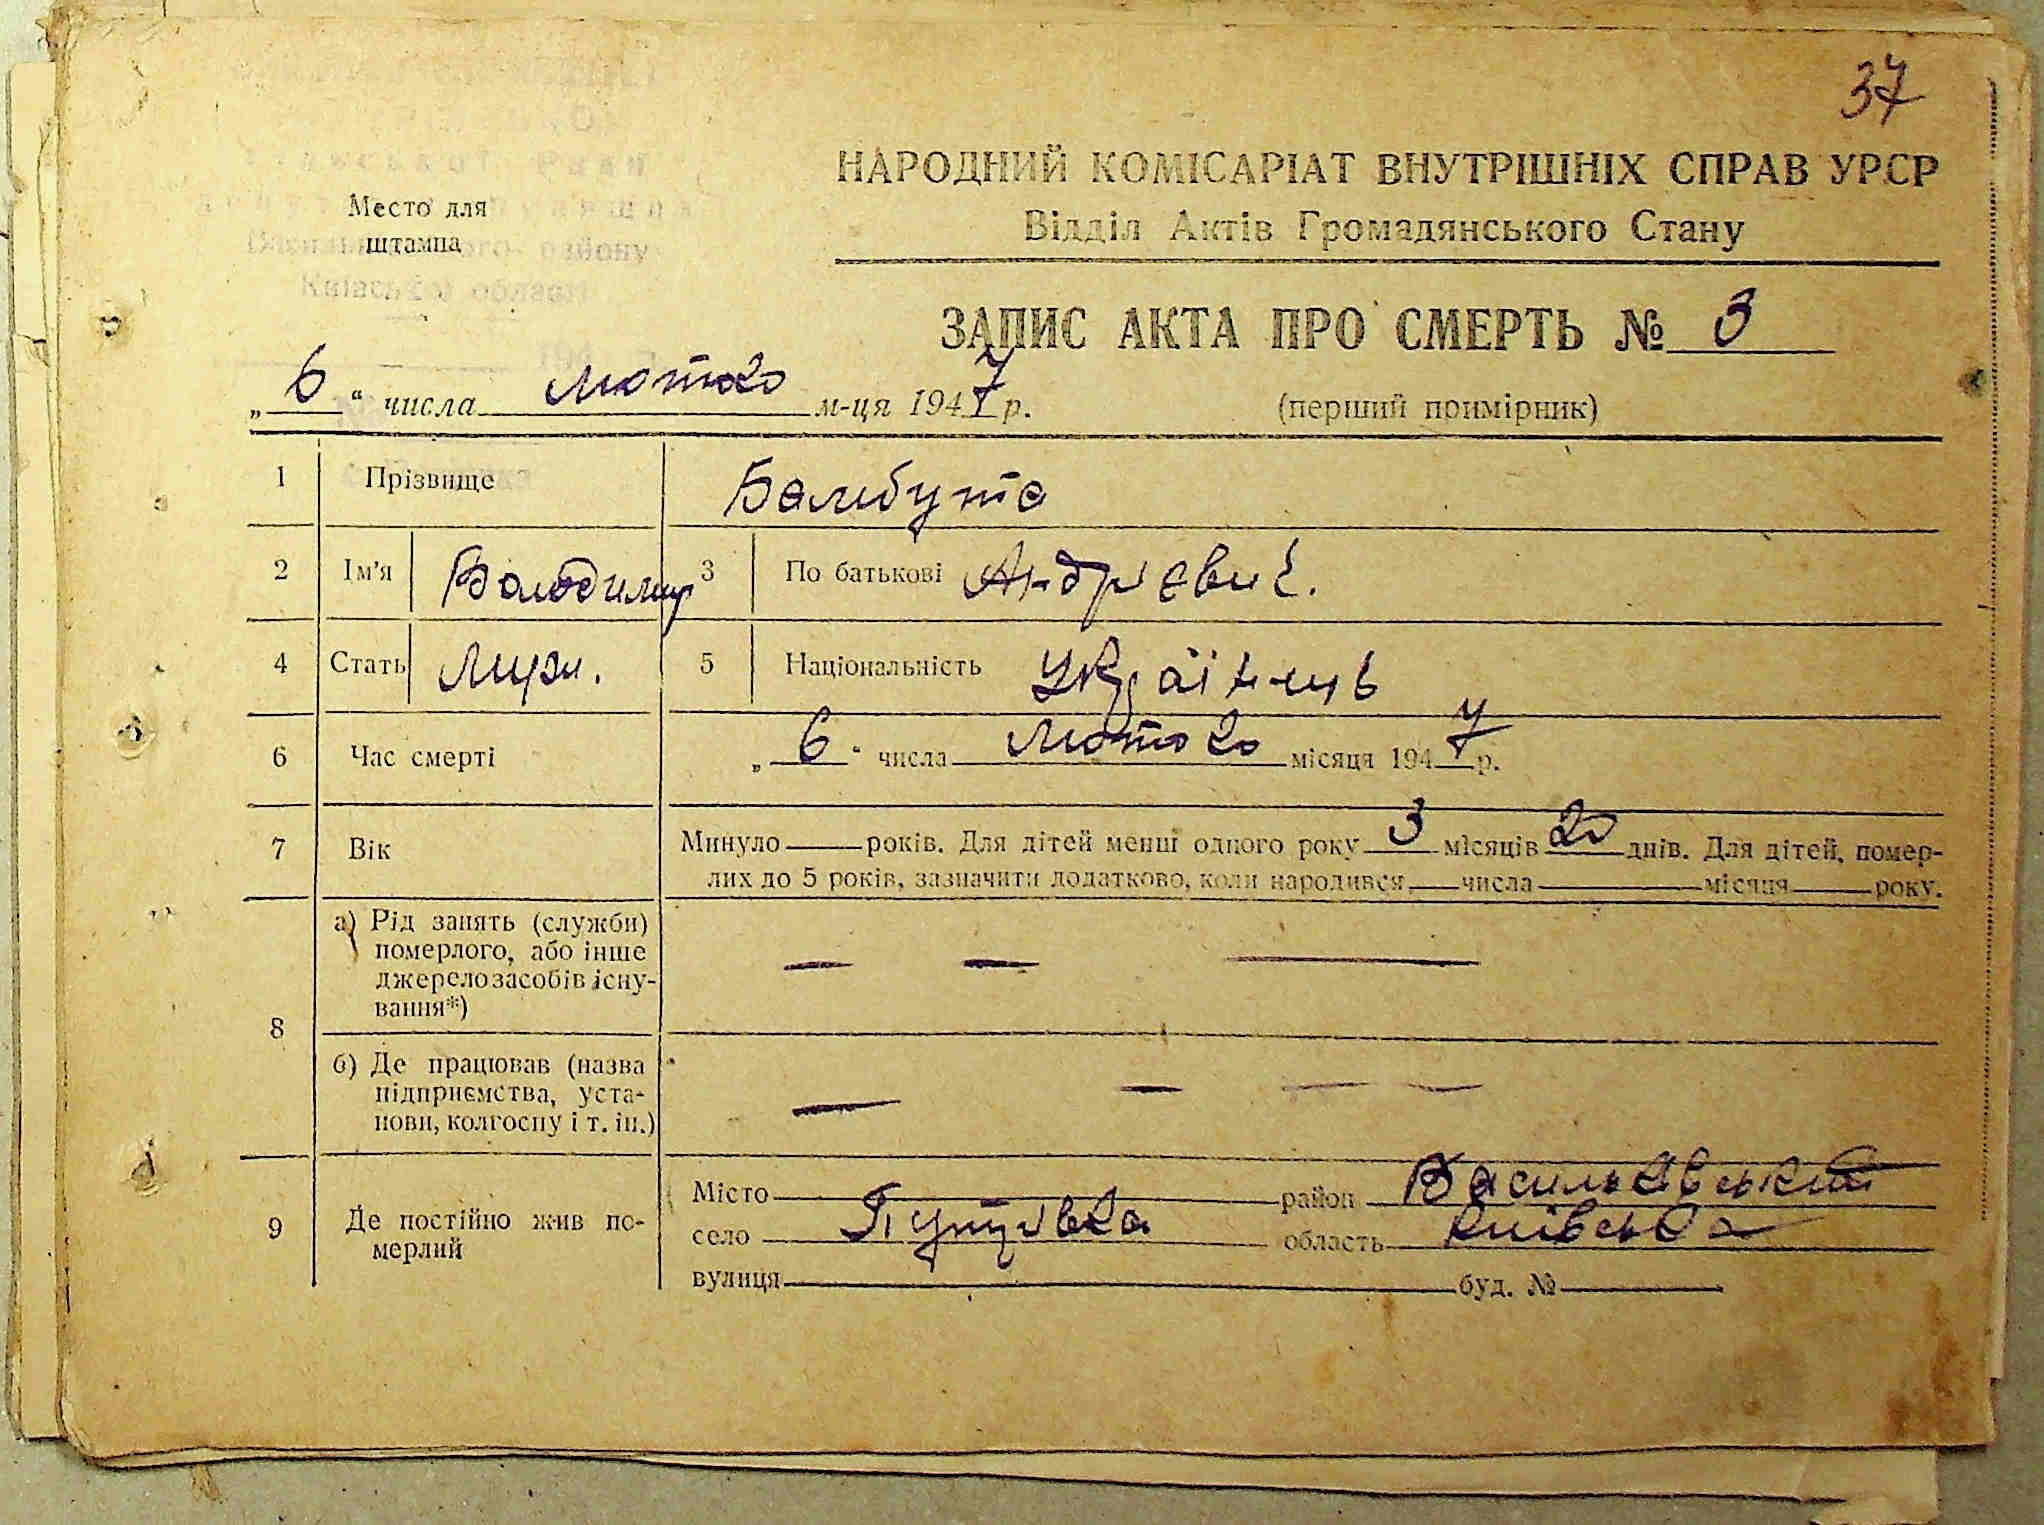 37
НАРОДНИЙ КОМІСАРІАТ ВНУТРІШНІХ СПРАВ УРСР
Відділ Актів Громадянського Стану
Место для
штампа
ЗАПИС АКТА ПРО СМЕРТЬ № 3
„6“ числа лютого м-ця 1947 р.
(перший примірник)
1 Прізвище Балабута
2 Ім'я Володимир 3 По батькові Андрієвич.
4 Стать Муж. 5 Національність Українець
6 Час смерті „6“ числа лютого місяця 1947 р.
7 Вік Минуло — років. Для дітей менш одного року 3 місяців 20 днів. Для дітей, помер-
лих до 5 років, зазначити додатково, коли народився — числа — місяця — року.
8 а) Рід занять (служби)
померлого, або інше
джерело засобів існу-
вання*)
— — —
б) Де працював (назва
підприємства, уста-
нови, колгоспу і т. ін.)
— — — —
9 Де постійно жив по-
мерлий
Місто район Васильківський
село Путрівка область Київська
вулиця буд. №